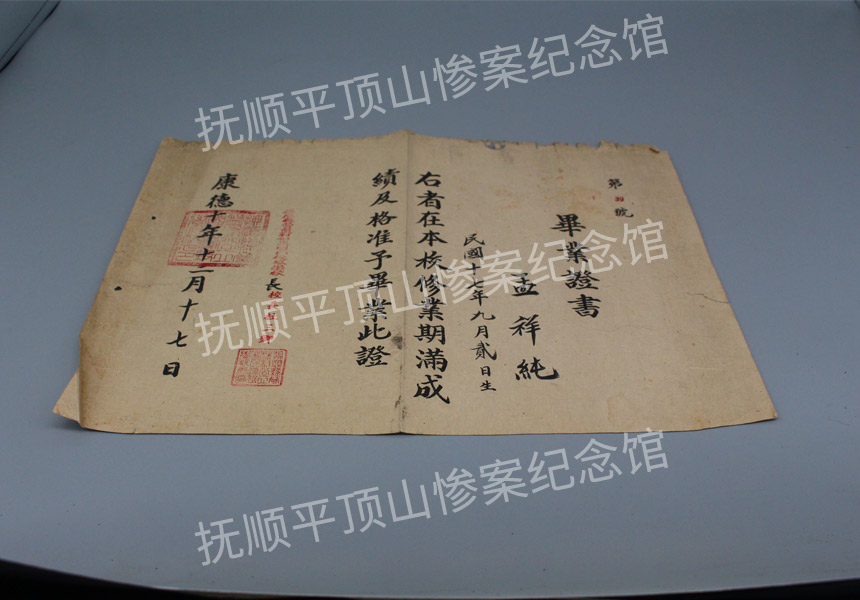 第號
畢業證書
孟祥純
民國十七年九月貳日生
右者在本校修業期滿成
績及格准予畢業此證
長
康德十年十二月十七日
抚顺平顶山惨案纪念馆
抚顺平顶山惨案纪念馆
抚顺平顶山惨案纪念馆